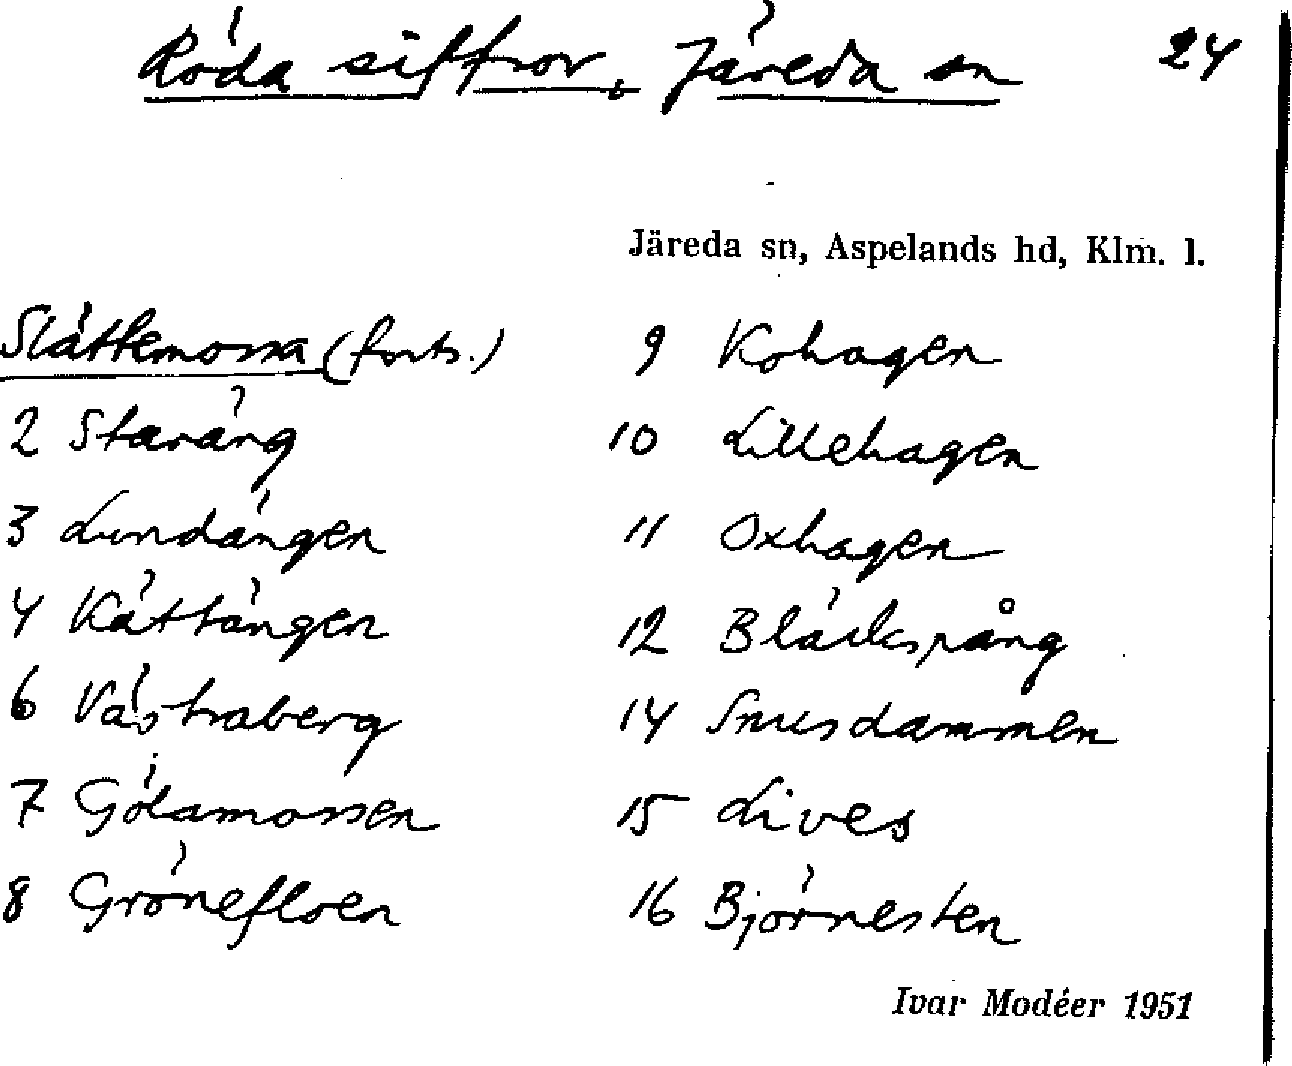 Röda siffror, Järeda sn 24
Järeda sn, Aspelands hd, Klm. l.
Slättemossa (forts.)
2 Staräng
3 Lundängen
4 Kättängen
6 Västraberg
7 Gölamossen
8 Grönefloen
9 Kohagen
10 Lillehagen
11 Oxhagen
12 Bläckspång
14 Snusdammen
15 Lives
16 Björnesten
Ivar Modéer 1951